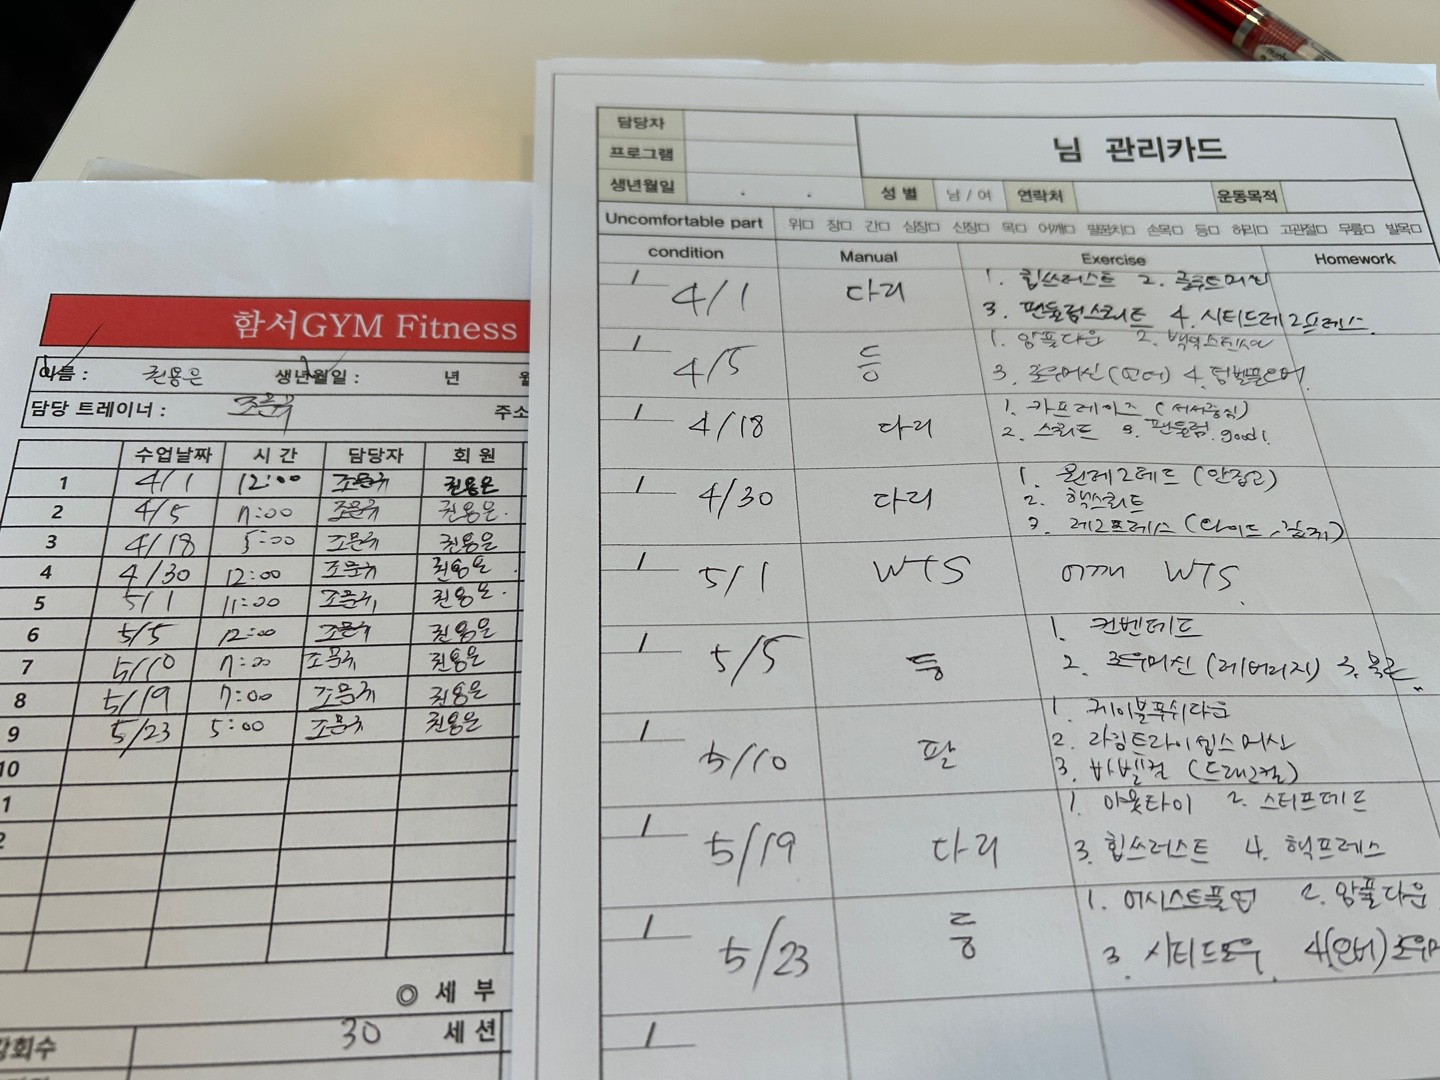 함서GYM Fitness
이름 : 권용은 생년월일 : 년 월
담당 트레이너 : 주소
수업날짜 시 간 담당자 회 원
1 4/1 12:00 권용은
2 4/5 7:00 권용은.
3 4/18 5:00 권용은
4 4/30 12:00 권용은
5 5/1 11:00 권용은
6 5/5 12:00 권용은
7 5/10 7:00 권용은
8 5/19 7:00 권용은
9 5/23 5:00 권용은
10
◎ 세 부
회수 30 세 션
담당자
프로그램
님 관리카드
생년월일 . . 성 별 남 / 여 연락처 운동목적
Uncomfortable part 위□ 장□ 간□ 심장□ 신장□ 목□ 어깨□ 팔꿈치□ 손목□ 등□ 허리□ 고관절□ 무릎□ 발목□
condition Manual Exercise Homework
/ 4/1 다리 1. 힙쓰러스트 2. 글루트머신
3. 펜듈럼스쿼트 4. 시티드레그프레스
/ 4/5 등 1. 암풀다운 2.
3. 로우머신(언더) 4. 덤벨풀오버
/ 4/18 다리 1. 카프레이즈
2. 스쿼트 3. 펜듈럼. good!
/ 4/30 다리 1. 원레그레드 (안잡고)
2. 핵스쿼트
3. 레그프레스 (와이드,
/ 5/1 WTS 어깨 WTS.
/ 5/5 등 1. 컨벤데드
2. 로우머신 (레버리지) 3.
/ 5/10 팔 1. 케이블푸쉬다운
2. 라잉트라이셉스머신
3. 바벨컬 (드래그컬)
/ 5/19 다리 1. 이웃타이 2. 스티프데드
3. 힙쓰러스트 4. 핵프레스
/ 5/23 등 1. 어시스트풀업 2. 암풀다운
3. 시티드로우 4(언더)로우머
/